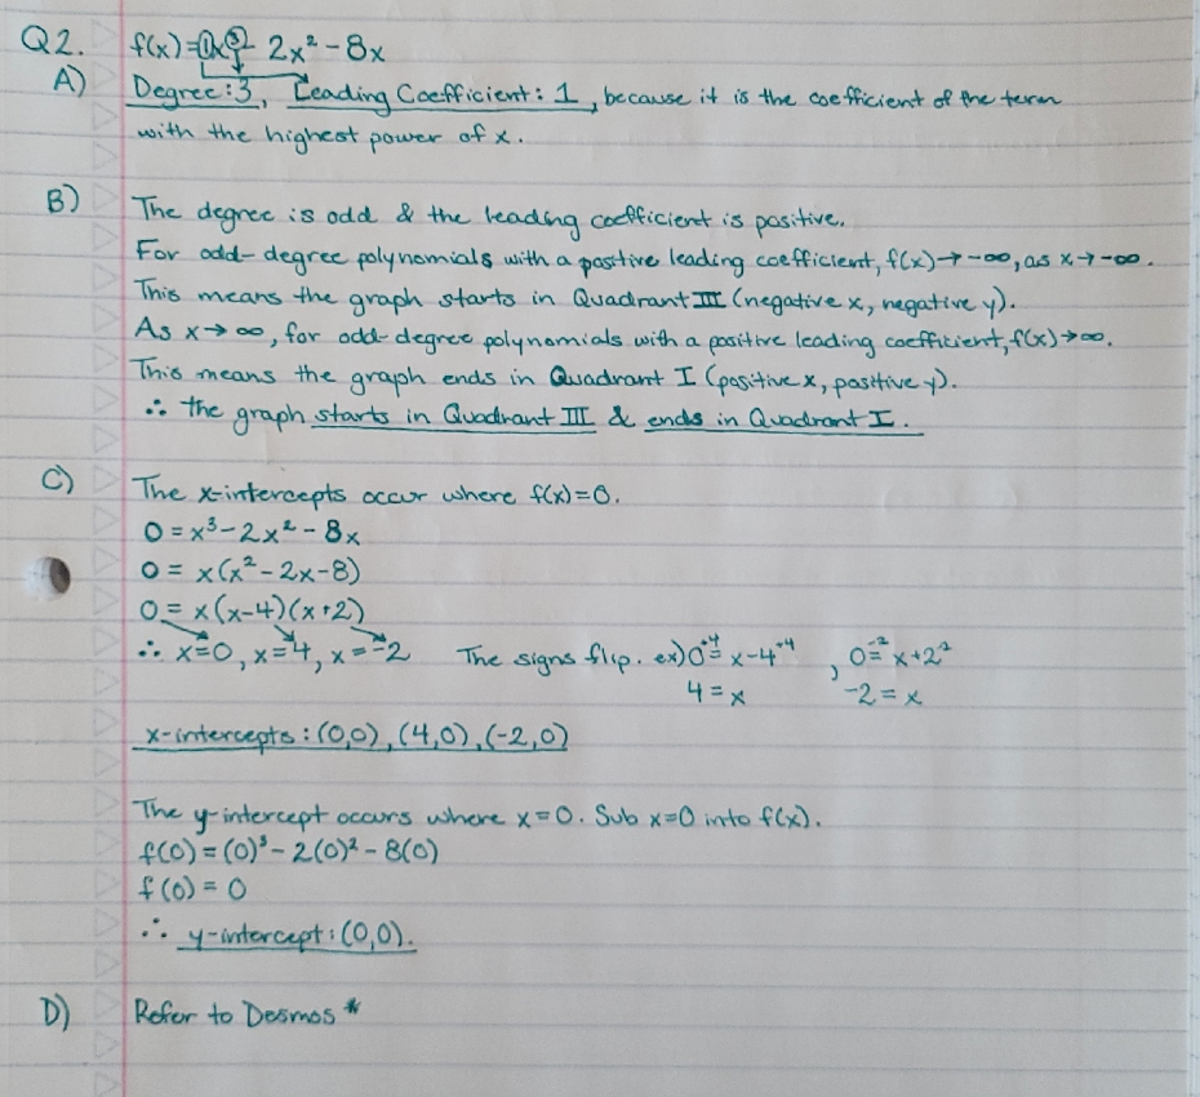 Q2. f(x)=1x³- 2x² - 8x
A) Degree: 3, Leading Coefficient: 1, because it is the coefficient of the term
with the highest power of x.
B) The degree is odd & the leading coefficient is positive.
For odd-degree polynomials with a positive leading coefficient, f(x)→-∞, as x→-∞.
This means the graph starts in Quadrant III (negative x, negative y).
As x→∞, for odd-degree polynomials with a positive leading coefficient, f(x)→∞.
This means the graph ends in Quadrant I (positive x, positive y).
∴ the graph starts in Quadrant III & ends in Quadrant I.
C) The x-intercepts occur where f(x)=0.
0 = x³-2x² - 8x
0 = x(x²-2x-8)
0 = x(x-4)(x+2)
∴ x=0, x=4, x=-2 The signs flip. ex) 0⁺⁴= x-4⁺⁴ , 0⁻²= x+2⁻²
4 = x -2 = x
x-intercepts: (0,0), (4,0), (-2,0)
The y-intercept occurs where x=0. Sub x=0 into f(x).
f(0) = (0)³ - 2(0)² - 8(0)
f(0) = 0
∴ y-intercept: (0,0).
D) Refer to Desmos *